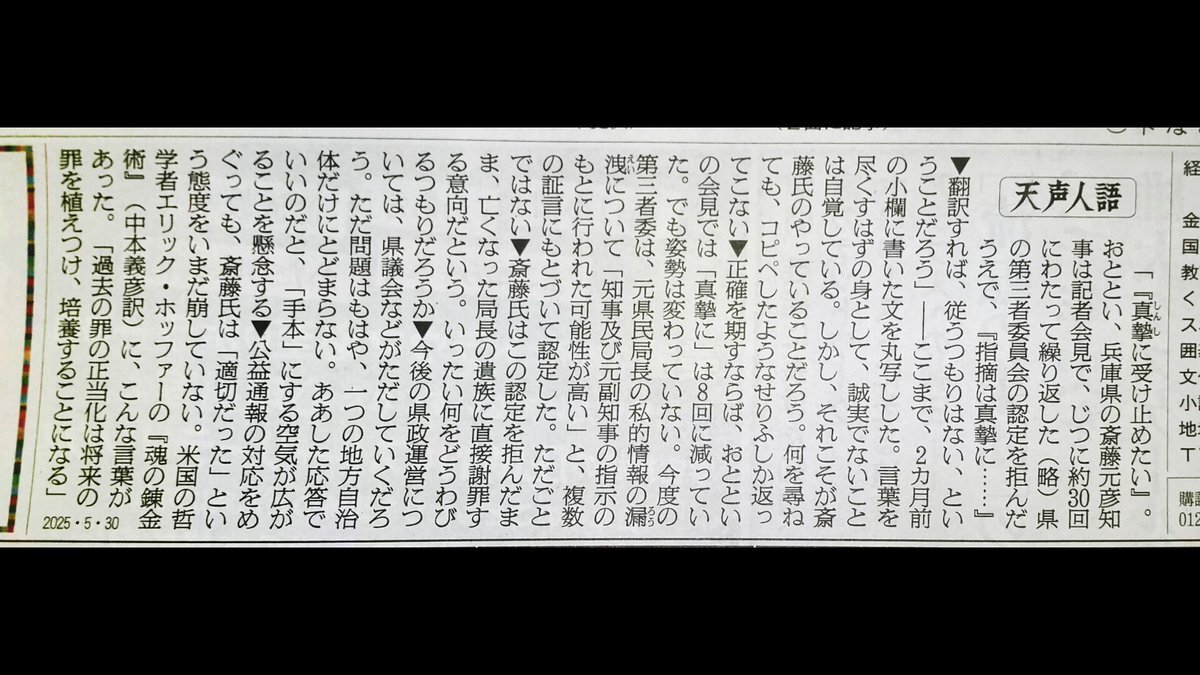 天声人語
「『真摯に受け止めたい』。
おととい、兵庫県の斎藤元彦知
事は記者会見で、じつに約30回
にわたって繰り返した（略）県
の第三者委員会の認定を拒んだ
うえで、『指摘は真摯に……』
▼翻訳すれば、従うつもりはない、とい
うことだろう」――ここまで、2カ月前
の小欄に書いた文を丸写しした。言葉を
尽くすはずの身として、誠実でないこと
は自覚している。しかし、それこそが斎
藤氏のやっていることだろう。何を尋ね
ても、コピペしたようなせりふしか返っ
てこない▼正確を期すならば、おととい
の会見では「真摯に」は8回に減ってい
た。でも姿勢は変わっていない。今度の
第三者委は、元県民局長の私的情報の漏
洩について「知事及び元副知事の指示の
もとに行われた可能性が高い」と、複数
の証言にもとづいて認定した。ただごと
ではない▼斎藤氏はこの認定を拒んだま
ま、亡くなった局長の遺族に直接謝罪す
る意向だという。いったい何をどうわび
るつもりだろうか▼今後の県政運営につ
いては、県議会などがただしていくだろ
う。ただ問題はもはや、一つの地方自治
体だけにとどまらない。ああした応答で
いいのだと、「手本」にする空気が広が
ることを懸念する▼公益通報の対応をめ
ぐっても、斎藤氏は「適切だった」とい
う態度をいまだ崩していない。米国の哲
学者エリック・ホッファーの『魂の錬金
術』（中本義彦訳）に、こんな言葉が
あった。「過去の罪の正当化は将来の
罪を植えつけ、培養することになる」
2025・5・30